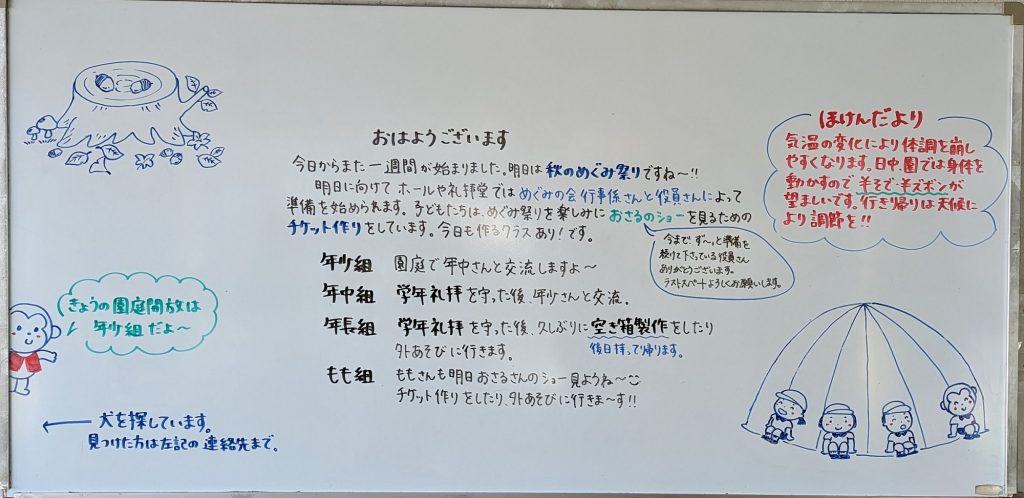 おはようございます
今日からまた一週間が始まりました。明日は秋のめぐみ祭りですね〜!!
明日に向けてホールや礼拝堂ではめぐみの会行事係さんと役員さんによって
準備を始められます。子どもたちは、めぐみ祭りを楽しみにおさるのショーを見るための
チケット作りをしています。今日も作るクラスあり!です。
今まで ず〜っと準備を
続けて下さっている役員さん
ありがとうございます。
ラストスパートよろしくお願いします。
年少組 園庭で年中さんと交流しますよ〜
年中組 学年礼拝を守った後、年少さんと交流。
年長組 学年礼拝を守った後、久しぶりに空き箱製作をしたり
後日持って帰ります。
外あそびに行きます。
もも組 ももさんも明日おさるさんのショー見ようね〜
チケット作りをしたり、外あそびに行きま〜す!!
ほけんだより
気温の変化により体調を崩し
やすくなります。日中、園では身体を
動かすので半そで・半ズボンが
望ましいです。行き帰りは天候に
より調節を!!
きょうの園庭開放は
年少組だよ〜
← 犬を探しています。
見つけた方は左記の連絡先まで。